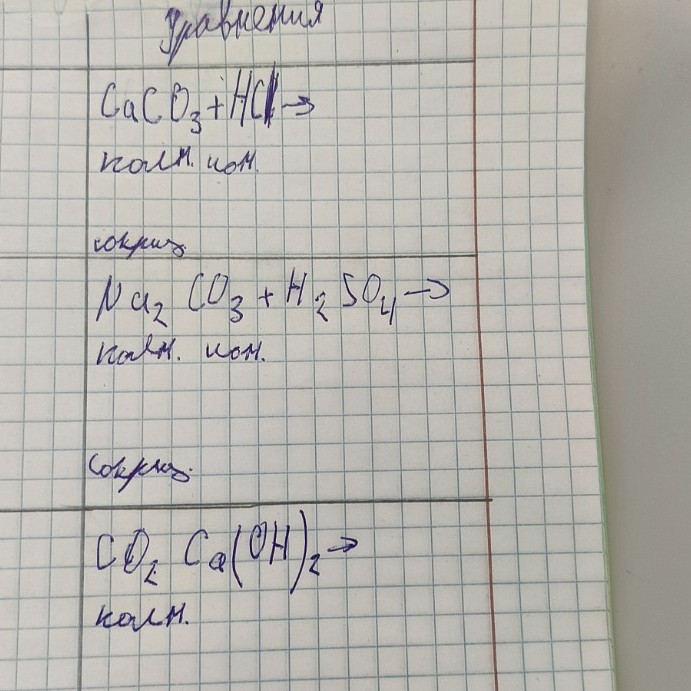 Уравнения
CaCO₃ + HCl →
полн. ион.
сокращ.
Na₂ CO₃ + H₂ SO₄ →
полн. ион.
Сокращ.
CO₂ Ca(OH)₂ →
полн.